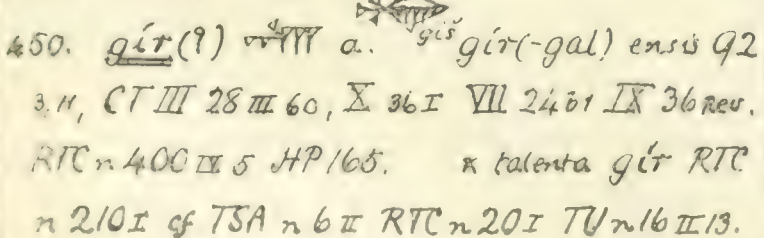 450. gír(?) a. giš gír(-gal) ensis G2
3.11, CT III 28 III 60, X 36 I VII 24 IX 36 rev.
RTC n 400 IV 5 HP 165. talenta gír RTC
n 210 I cf TSA n 6 II RTC n 20 I TU n 16 II 13.